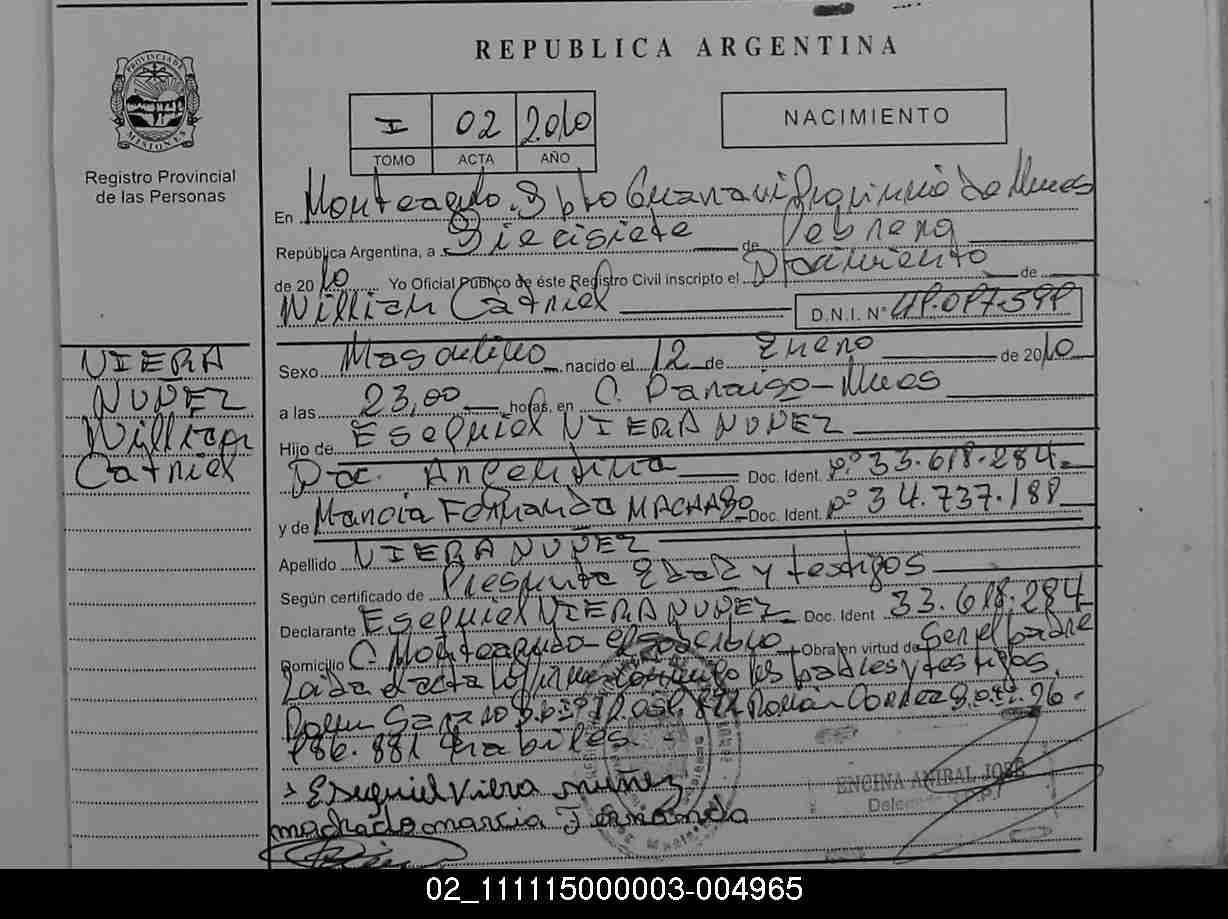 REPUBLICA ARGENTINA
PROVINCIA DE MISIONES
Registro Provincial
de las Personas
I 02 2010
TOMO ACTA AÑO
NACIMIENTO
En Monteagudo. Dpto Guarani Provincia de Mnes
República Argentina, a Diecisiete de Febrero
de 2010 Yo Oficial Público de éste Registro Civil inscripto el Nacimiento de
Willian Catriel D.N.I. N°
VIERA
NUÑEZ
Willian
Catriel
Sexo Masculino nacido el 12 de Enero de 2010
a las 23,00 horas, en C. Paraiso-Mnes
Hijo de Esequiel VIERA NUÑEZ
Nac. Argentina Doc. Ident. N° 33.618.284
y de Marcia Fernanda MACHADO Doc. Ident. N° 34.737.188
Apellido VIERA NUÑEZ
Según certificado de Presunta Edad y testigos
Declarante Esequiel VIERA NUÑEZ Doc. Ident 33.618.284
Domicilio C. Monteagudo-El Soberbio Obra en virtud de Ser el padre
Leida el acta los padres y testigos
Roman Correa D.N.I. 26.
186.881 habiles.
Esequiel Viera nuñez
machado marcia Fernanda
ENCINA ANIBAL JOSE
02_111115000003-004965